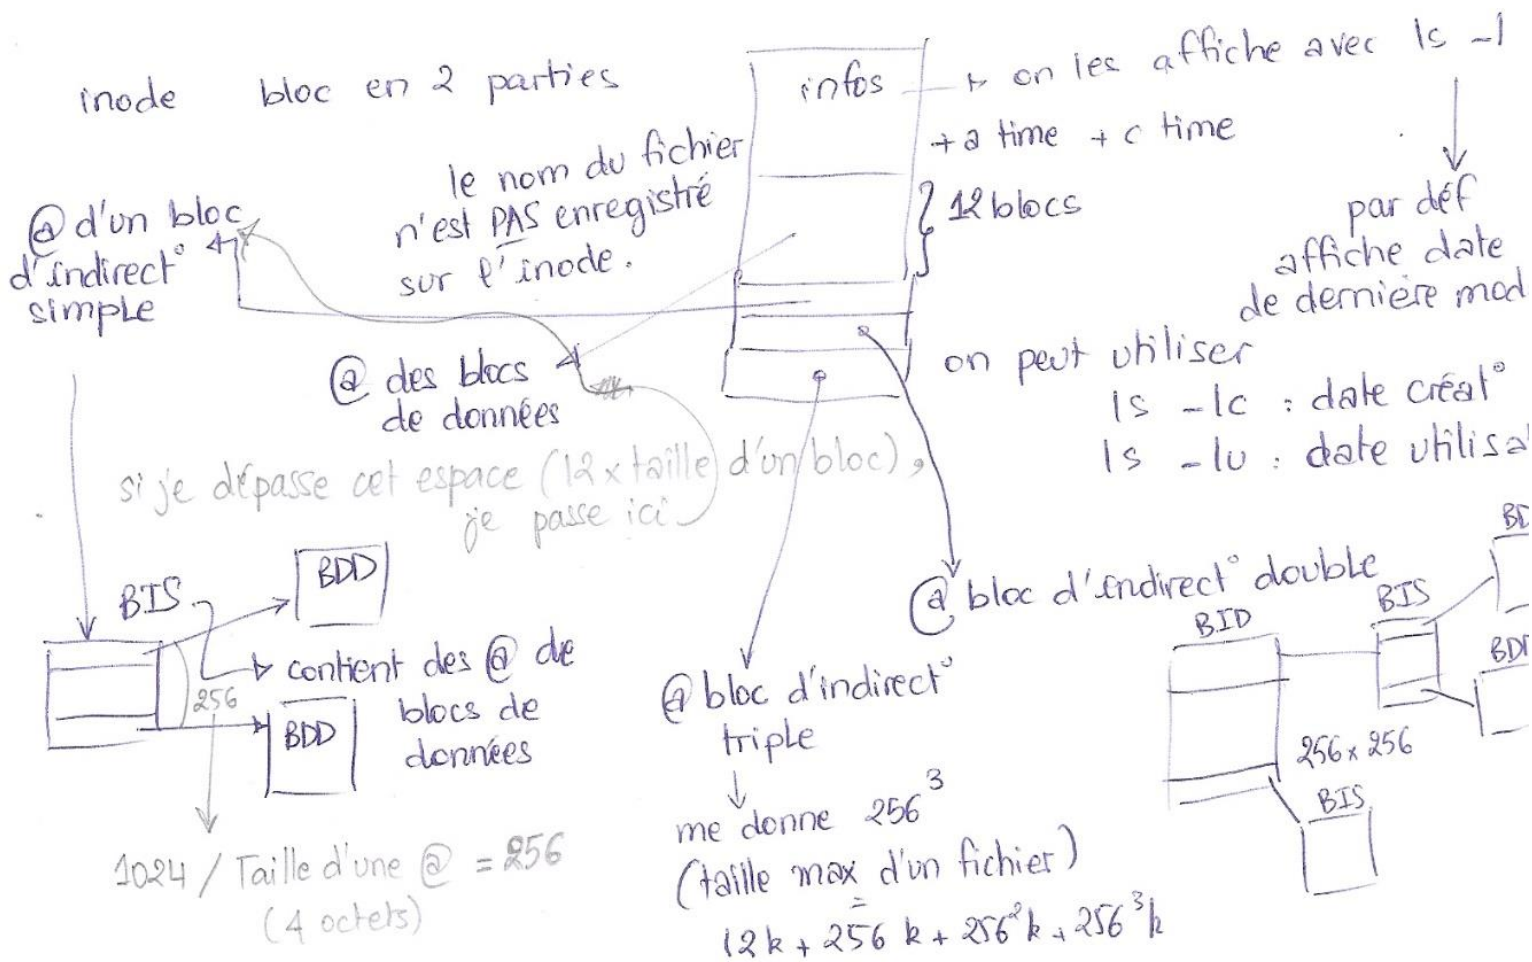 inode bloc en 2 parties
infos
on les affiche avec ls -l
+ a time + c time
12 blocs
par déf
affiche date
de dernière mod
le nom du fichier
n'est PAS enregistré
sur l'inode.
@ d'un bloc
d'indirect°
simple
@ des blocs
de données
on peut utiliser
ls -lc : date créat°
ls -lu : date utilisa
si je dépasse cet espace (12 x taille d'un bloc),
je passe ici
BIS
BDD
contient des @ de
blocs de
données
256
BDD
1024 / Taille d'une @ = 256
(4 octets)
@ bloc d'indirect°
triple
me donne 256³
(taille max d'un fichier)
=
12k + 256 k + 256²k + 256³k
@ bloc d'indirect° double
BID
BIS
256 x 256
BIS